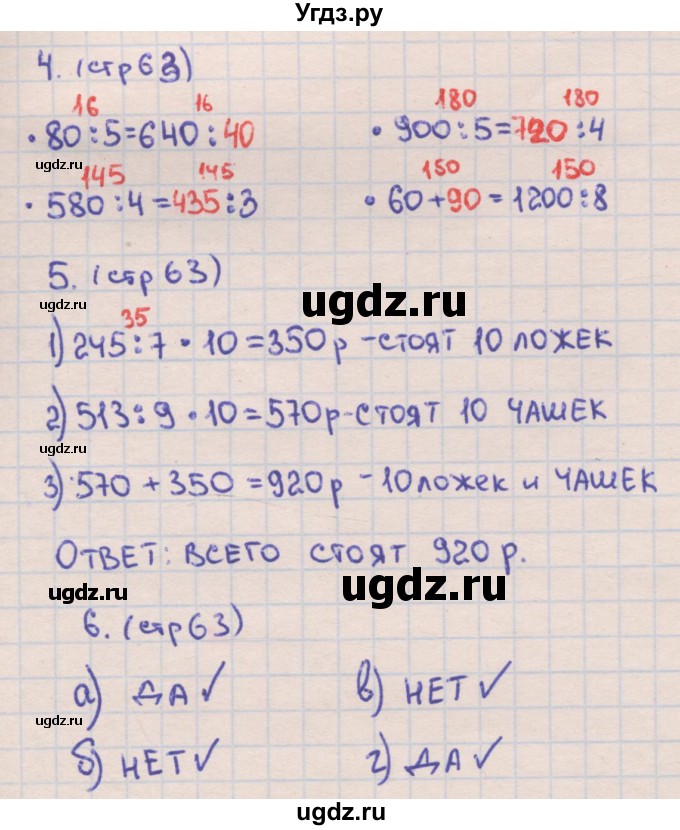 Угдз.ру
4. (стр 63)
16 16 180 180
• 80 : 5 = 640 : 40 • 900 : 5 = 720 : 4
ugdz.ru
145 145 150 150
• 580 : 4 = 435 : 3 • 60 + 90 = 1200 : 8
5. (стр 63)
ugdz.ru
35
1) 245 : 7 • 10 = 350 р - стоят 10 ложек
ugdz.ru
2) 513 : 9 • 10 = 570 р - стоят 10 чашек
3) 570 + 350 = 920 р - 10 ложек и чашек
Ответ: всего стоят 920 р.
ugdz.ru ugdz.ru
6. (стр 63)
а) ДА ✓ в) НЕТ ✓
ugdz.ru
б) НЕТ ✓ г) ДА ✓
ugdz.ru